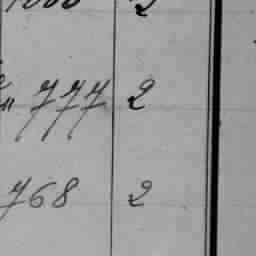 777 2
768 2